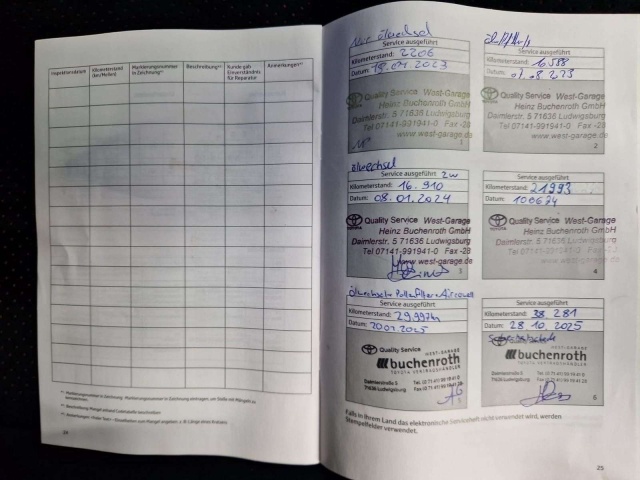 Inspektionsdatum
Kilometerstand (km/Meilen)
Markierungsnummer in Zeichnung*¹
Beschreibung*²
Kunde gab Einverständnis für Reparatur
Anmerkungen*³
24
Nur Ölwechsel
Service ausgeführt
Kilometerstand: 2206
Datum: 19.04.2023
Quality Service West-Garage
Heinz Buchenroth GmbH
Daimlerstr. 5 71636 Ludwigsburg
Tel 07141-991941-0 Fax -28
www.west-garage.de
1
Service ausgeführt
Kilometerstand: 16588
Datum: 01.08.2023
Quality Service West-Garage
Heinz Buchenroth GmbH
Daimlerstr. 5 71636 Ludwigsburg
Tel 07141-991941-0 Fax -28
www.west-garage.de
2
Ölwechsel
Service ausgeführt
Kilometerstand: 16.910
Datum: 08.01.2024
Quality Service West-Garage
Heinz Buchenroth GmbH
Daimlerstr. 5 71636 Ludwigsburg
Tel 07141-991941-0 Fax -28
www.west-garage.de
3
Service ausgeführt
Kilometerstand: 21993
Datum: 100624
Quality Service West-Garage
Heinz Buchenroth GmbH
Daimlerstr. 5 71636 Ludwigsburg
Tel 07141-991941-0 Fax -28
www.west-garage.de
4
Service ausgeführt
Kilometerstand: 29997km
Datum: 20.01.2025
Quality Service
WEST-GARAGE
buchenroth
TOYOTA VERTRAGSHÄNDLER
Daimlerstraße 5
71636 Ludwigsburg
Tel. (0 71 41) 99 19 41 0
Fax (0 71 41) 99 19 41 28
Service ausgeführt
Kilometerstand: 38 281
Datum: 28.10.2025
WEST-GARAGE
buchenroth
TOYOTA VERTRAGSHÄNDLER
Daimlerstraße 5
71636 Ludwigsburg
Tel. (0 71 41) 99 19 41 0
Fax (0 71 41) 99 19 41 28
6
Falls in Ihrem Land das elektronische Serviceheft nicht verwendet wird, werden
Stempelfelder verwendet.
25